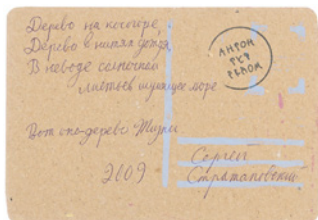 Дерево на косогоре,
Дерево в нитях дождя,
В неводе солнечном
листьев шумящее море
Вот оно-дерево Жизни
2009
Сергей
Стратановский